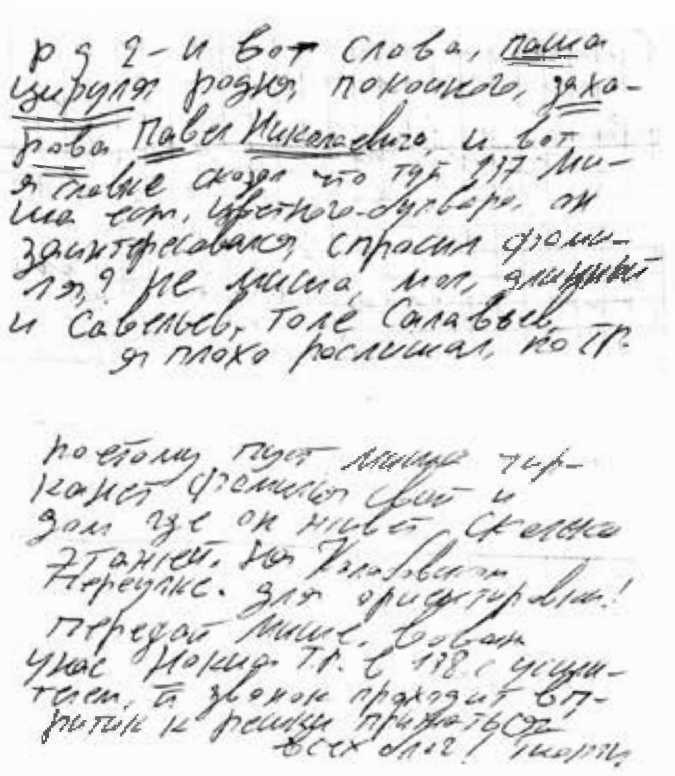 р я 2 - и вот слова, паша
цируля родня, покоиного, заха-
рова Павел Николаевича, и вот
я славке сказал что тут 137 ми-
ша ест, цветного-булвара, он
заинтересовался, спросил фами-
ля,? не миша, мол, длинный
и Савельев, толе Салавьев,
я плохо рослишал, по тр.
поетому пуст миша чир-
канет фамилья свой и
дом где он живет, сколька
этажей. на
переулке. для ориентировки!
передай мише, вован
унас Нокиа тр. в 138 с усили-
телем, и звонок проходит вп-
ритик к решки прижаться
всех благ!